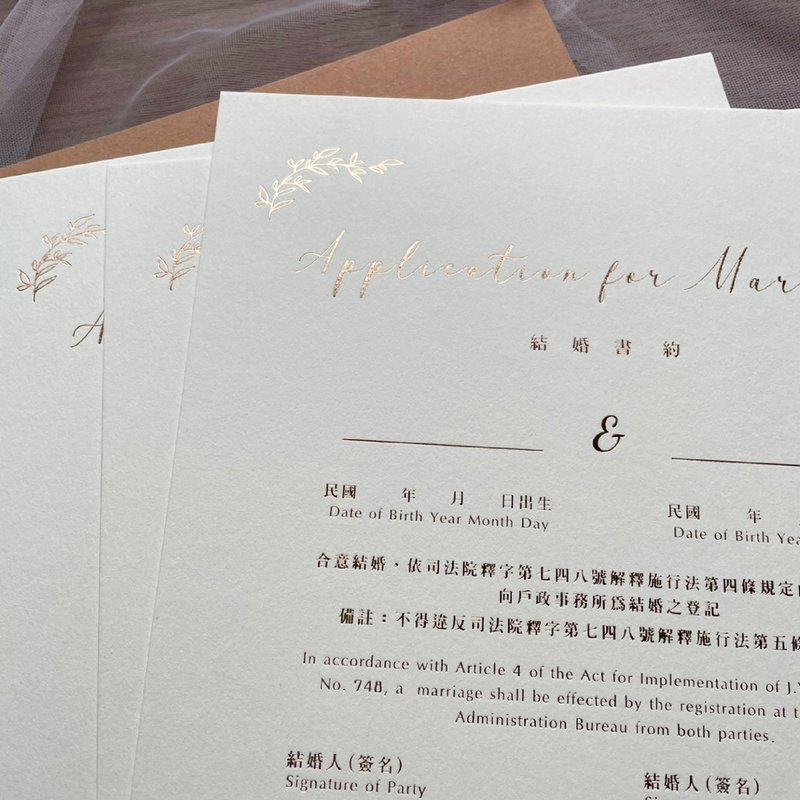 Application for Mar
結婚書約
&
民國 年 月 日出生
Date of Birth Year Month Day
民國 年
Date of Birth Yea
合意結婚，依司法院釋字第七四八號解釋施行法第四條規定
向戶政事務所為結婚之登記
備註：不得違反司法院釋字第七四八號解釋施行法第五條
In accordance with Article 4 of the Act for Implementation of J.Y
No. 748, a marriage shall be effected by the registration at t
Administration Bureau from both parties.
結婚人(簽名)
Signature of Party
結婚人(簽名)